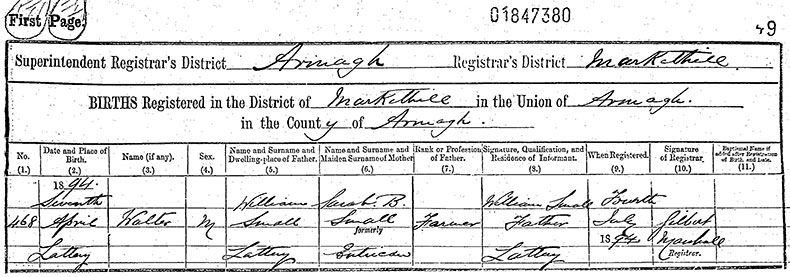 First Page.
01847380
49
Superintendent Registrar's District Armagh Registrar's District Markethill
BIRTHS Registered in the District of Markethill in the Union of Armagh.
in the County of Armagh.
No. Date and Place of Birth. Name (if any). Sex. Name and Surname and Dwelling-place of Father. Name and Surname and Maiden Surname of Mother Rank or Profession of Father. Signature, Qualification, and Residence of Informant. When Registered. Signature of Registrar. Baptismal Name if added after Registration of Birth, and Date.
(1.) (2.) (3.) (4.) (5.) (6.) (7.) (8.) (9.) (10.) (11.)
1894.
Seventh William Sarah B. William Small Fourth
468 April Walter M Small Small Farmer Father July Gilbert
formerly
Lattery Lattery Lattery 1894 Marshall
Registrar.